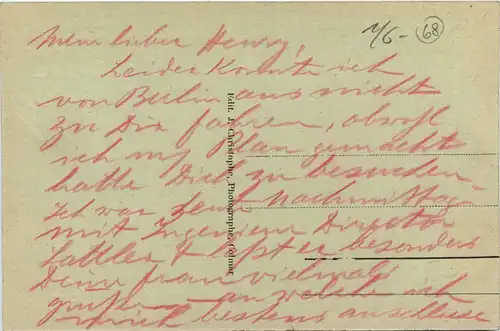 1/6- 68
Mein lieber Henry,
Leider konnte ich
von Berlin aus nicht
zu Dir fahren, obwohl
ich mir Plan gemacht
hatte Dich zu besuchen.
Ich war heute Nachmittag
mit Ingenieur Direktor
Sattler & läßt er besonders
Deine Frau vielmals
grüßen – an welche ich
mich bestens anschliesse
Edit. J. Christophe, Photographe, Colmar